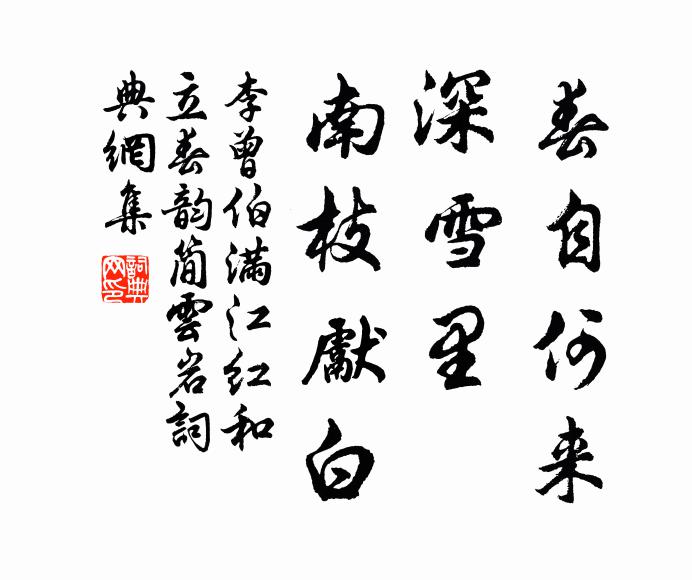 春自何来
深雪里
南枝獻白
李曾伯满江红和
立春韵简雲岩詞
典網集
詞典
网印